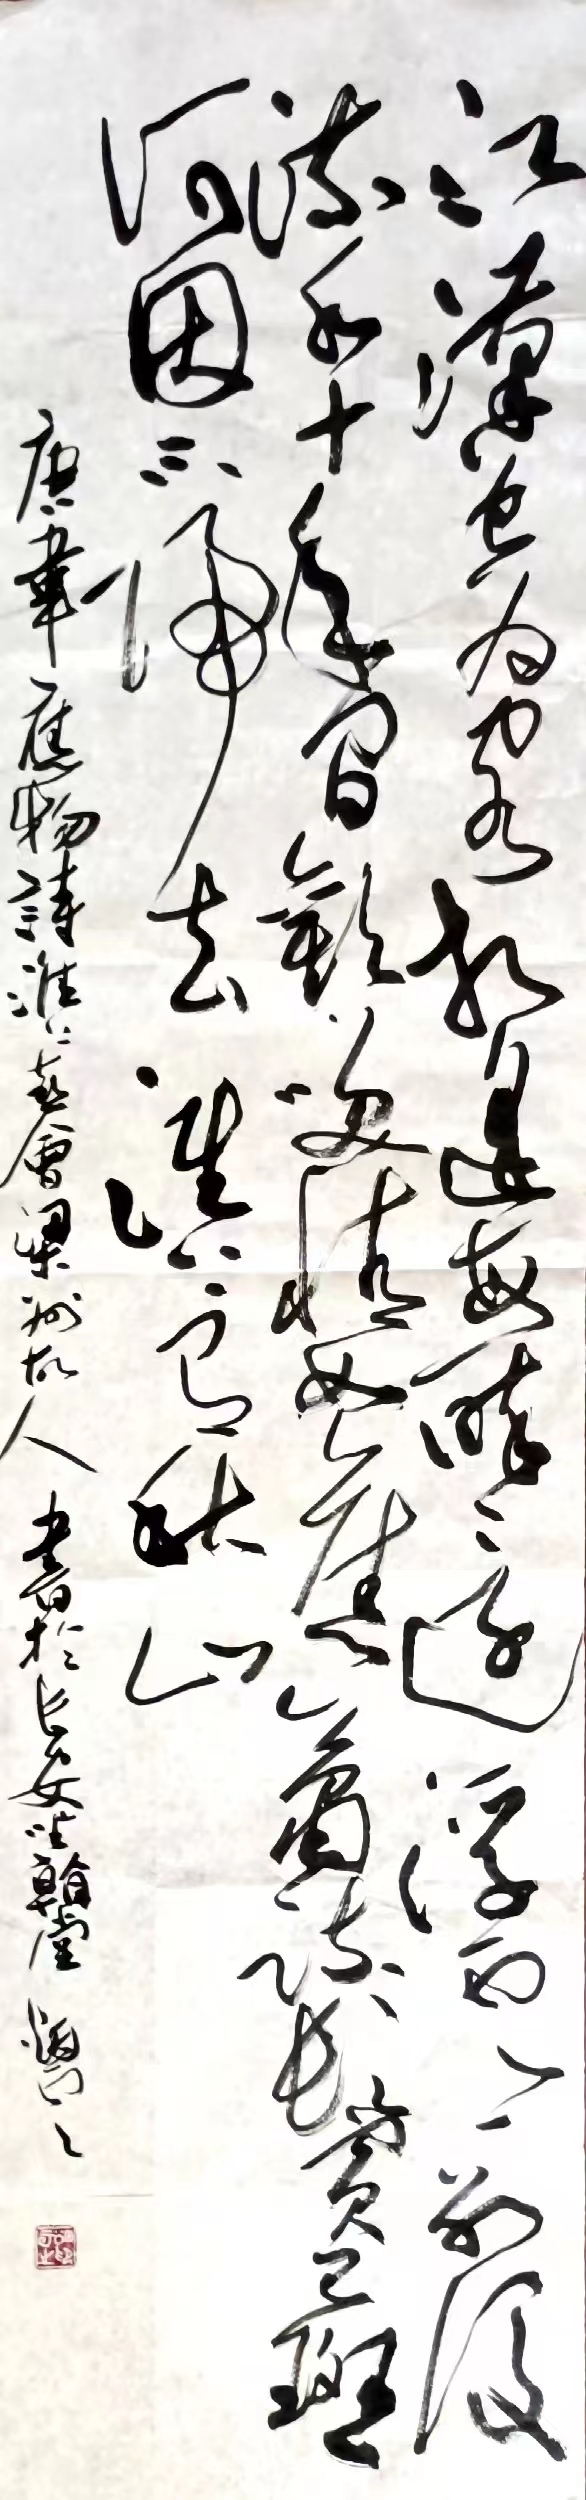 江漢曾为客相逢每醉還浮雲一别後
流水十年間歡笑情如舊蕭疏鬢已斑
何因不歸去淮上有秋山
唐韋應物詩淮上喜會梁州故人 書於長安翰堂